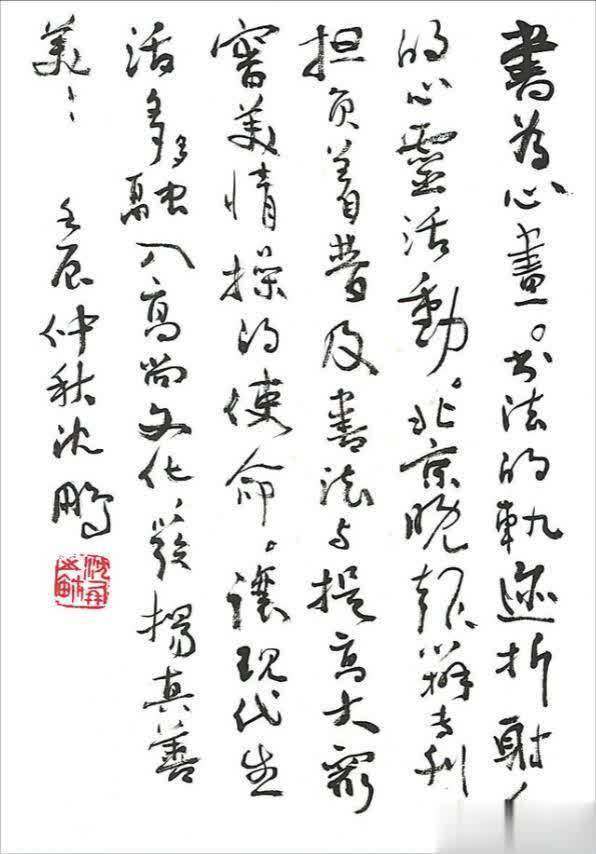 書為心畫。书法的軌迹折射人
的心靈活動。北京晚报辟专刊
担负着普及書法与提高大众
審美情操的使命。讓現代生
活多融入高尚文化，發揚真善
美
壬辰仲秋沈鹏